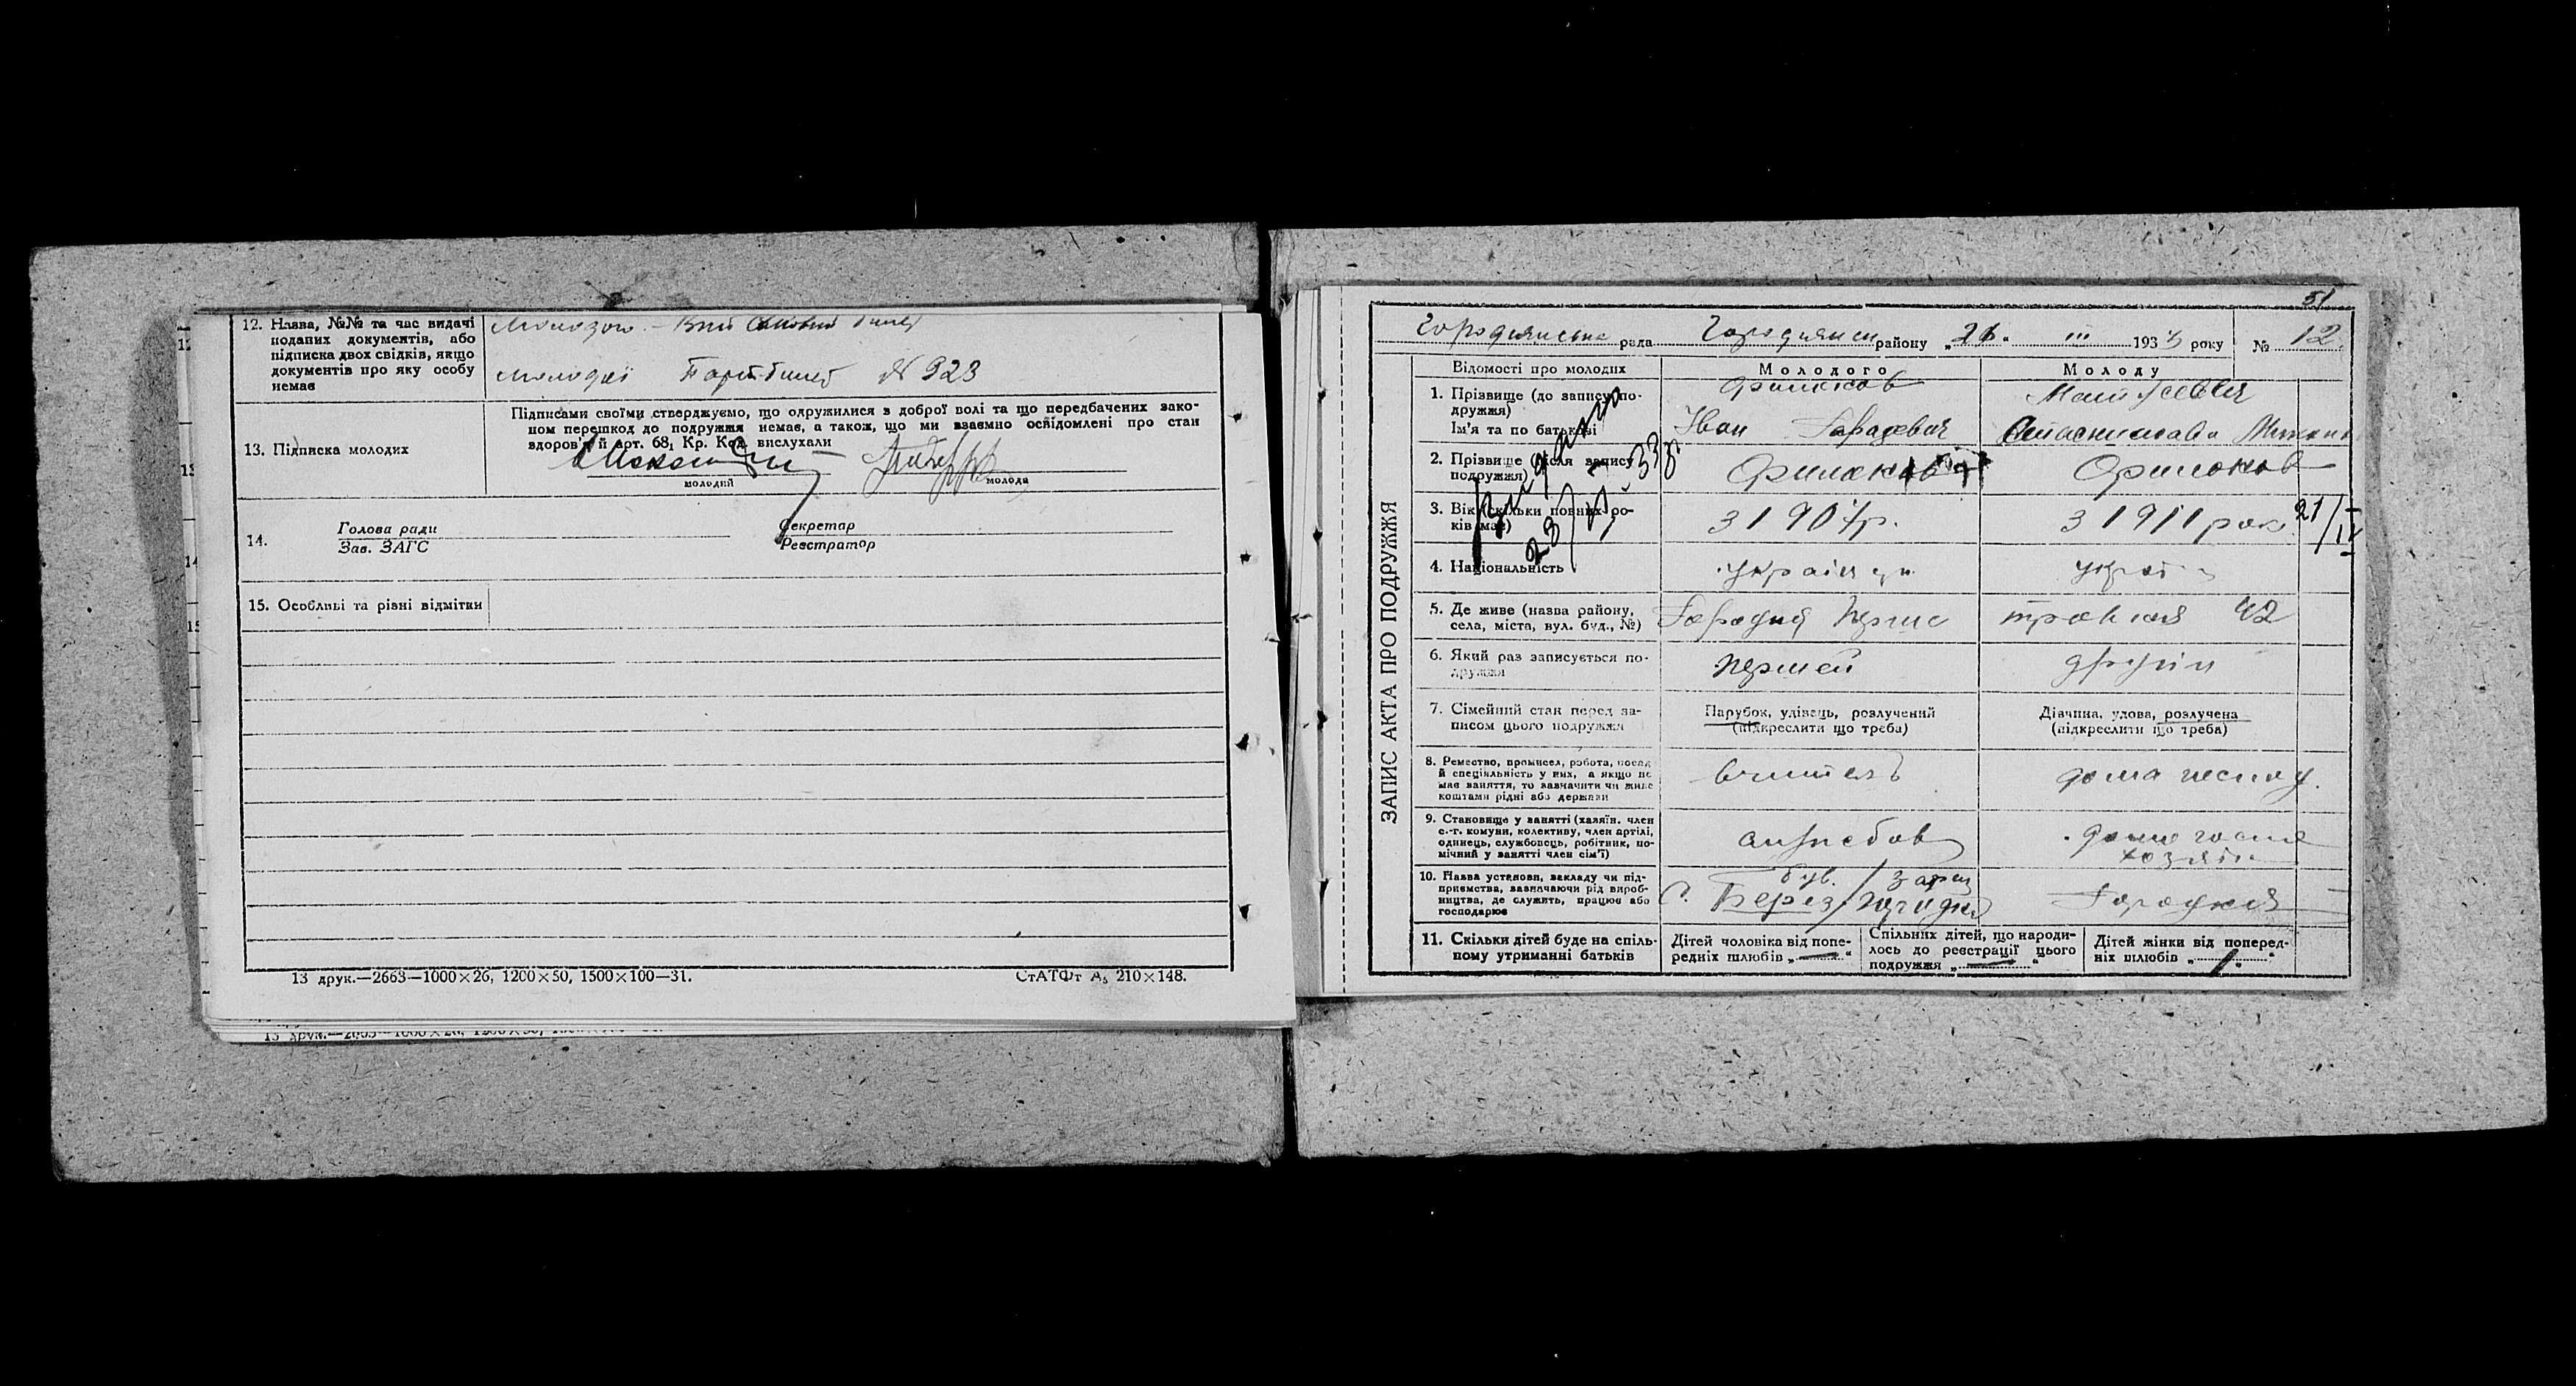 12. Назва, №№ та час видачі
поданих документів, або
підписка двох свідків, якщо
документів про яку особу
немає
Молодого - білет
молодої Парт-білет № 923
13. Підписка молодих
Підписами своїми стверджуємо, що одружилися з доброї волі та що передбачених зако-
ном перешкод до подружжя немає, а також, що ми взаємно освідомлені про стан
здоров'я й арт. 68, Кр. Код. вислухали
молодий
молода
14.
Голова ради
Зав. ЗАГС
Секретар
Реєстратор
15. Особливі та різні відмітки
13 друк.—2663—1000×26, 1200×50, 1500×100—31.
СтАТФт А₅ 210×148.
51
ЗАПИС АКТА ПРО ПОДРУЖЖЯ
Городнянська рада Городнянськ району „21“ III 1933 року № 12.
Відомості про молодих
Молодого
Молоду
1. Прізвище (до запису по-
дружжя)
Ім'я та по батькові
Іван
2. Прізвище (після запису
подружжя)
3. Вік (скільки повних ро-
ків має)
з 1907 р.
з 1911 рок
21/IV
4. Національність
українці
україн
5. Де живе (назва району,
села, міста, вул. буд., №)
Городня Перше
травня 42
6. Який раз записується по-
дружжя
першей
другий
7. Сімейний стан перед за-
писом цього подружжя
Парубок, удівець, розлучений
(підкреслити що треба)
Дівчина, удова, розлучена
(підкреслити що треба)
8. Ремество, промисел, робота, посад
й спеціяльність у них, а якщо не
має заняття, то зазначити чи живе
коштами рідні або держави
вчитель
9. Становище у занятті (хазяїн. член
с.-г. комуни, колективу, член артілі,
одинець, службовець, робітник, по-
мічний у занятті член сім'ї)
службов
хозяін
10. Назва установи, закладу чи під-
приємства, зазначаючи рід вироб-
ництва, де служить, працює або
господарює
Городня
11. Скільки дітей буде на спіль-
ному утриманні батьків
Дітей чоловіка від попе-
редніх шлюбів „—“
Спільних дітей, що народи-
лось до реєстрації цього
подружжя „—“
Дітей жінки від поперед-
ніх шлюбів „1“